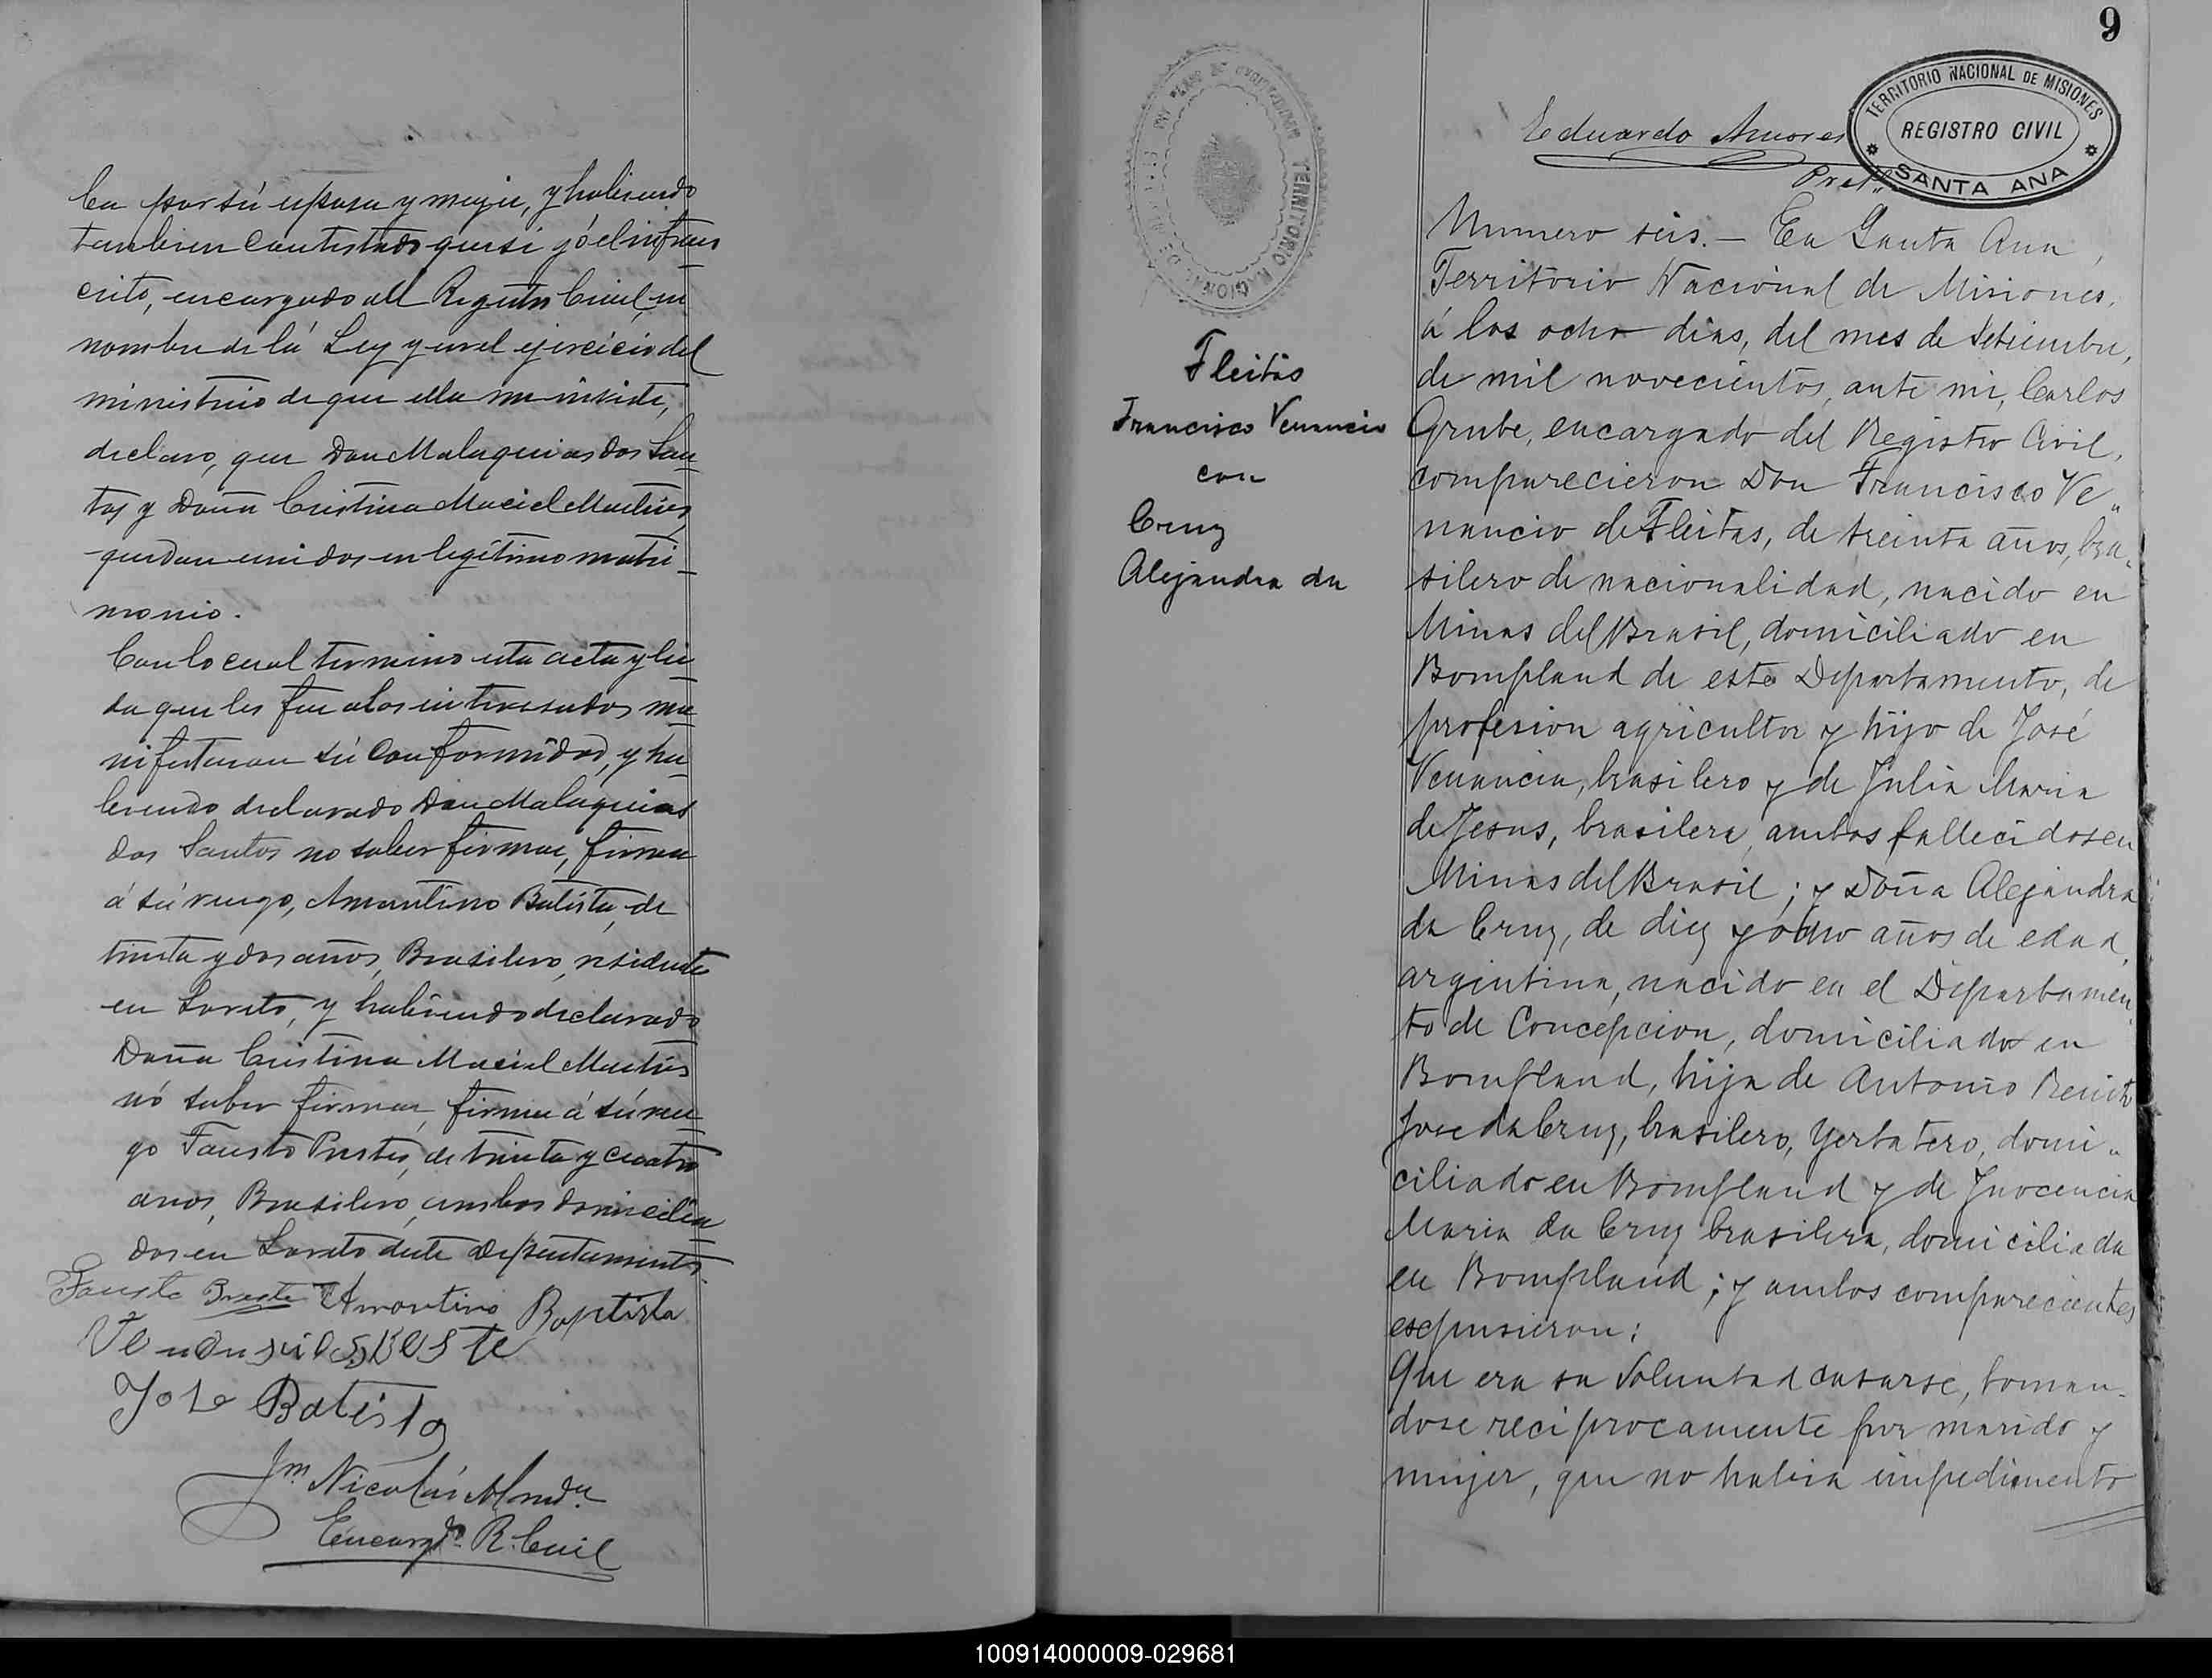 ca por sú esposa y mujer, y habiendo
tambien contestado que si yó el infras
crito, encargado del Registro Civil, en
nombre de lá Ley y en el ejercicio del
ministerio de que ella me inviste,
declaro, que Don Malaquias dos San
tos y Doña Cristina Maciel Martins
quedan unidos en legítimo matri
monio.
Con lo cual termino esta acta y lei
da que les fue a los interesados ma
nifestaron sú conformidad, y ha
biendo declarado Don Malaquias
dos Santos no saber firmar, firma
á sú ruego, Amantino Batista, de
treinta y dos años, Brasilero, residente
en Loreto, y habiendo declarado
Doña Cristina Maciel Martins
nó saber firmar, firma á sú rue
go Fausto Prestes, de treinta y cuatro
anos, Brasilero, ambos domicilia
dos en Loreto deste Departamento.
Fausto Preste Amantino Baptista
José Batista
Jm Nicolás
Encargdo R. Civil
9
TERRITORIO NACIONAL DE MISIONES
REGISTRO CIVIL
SANTA ANA
Eduardo
TERRITORIO NACIONAL DE
Fleitas
Francisco Venancio
con
Cruz
Alejandra da
Numero seis.— En Santa Ana,
Territorio Nacional de Misiones,
á los ocho dias, del mes de Setiembre,
de mil novecientos, ante mi, Carlos
Grube, encargado del Registro Civil,
comparecieron Don Francisco Ve„
nancio de Fleitas, de treinta años, bra„
silero de nacionalidad, nacido en
Minas del Brasil, domiciliado en
Bompland de este Departamento, de
profesion agricultor y hijo de José
Venancia, brasilero y de Julia Maria
de Jesus, brasilera, ambos fallecidos en
Minas del Brasil; y Doña Alejandra
da Cruz, de diez y ocho años de edad,
argentina, nacido en el Departamen„
to de Concepcion, domiciliado en
Bompland, hija de Antonio Benito
Jose da Cruz, brasilero, Yerbatero, domi„
ciliado en Bompland y de Inocencia
Maria da Cruz brasilera, domiciliada
en Bompland; y ambos comparecientes
espusieron:
Que era su voluntad casarse, toman„
dose reciprocamente por marido y
mujer, que no habia impedimento
100914000009-029681